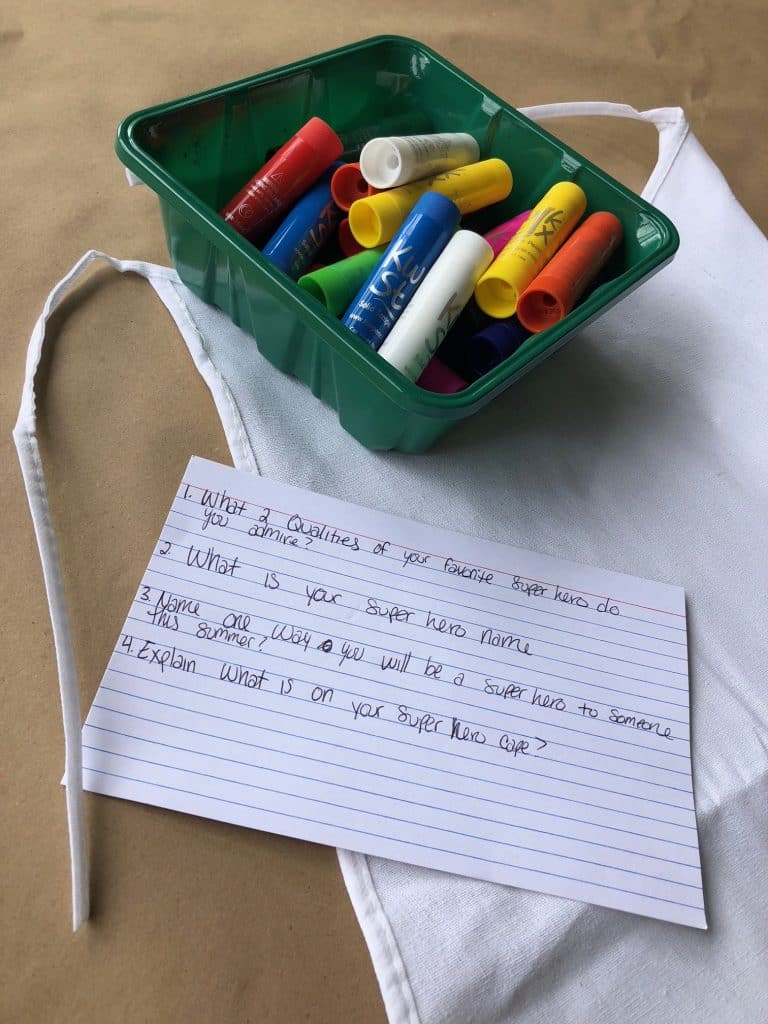 KWIK
STIX
1. What 2 Qualities of your favorite super hero do
you admire?
2. What is your super hero name
3. Name one way you will be a super hero to someone
this summer?
4. Explain what is on your super hero cape?